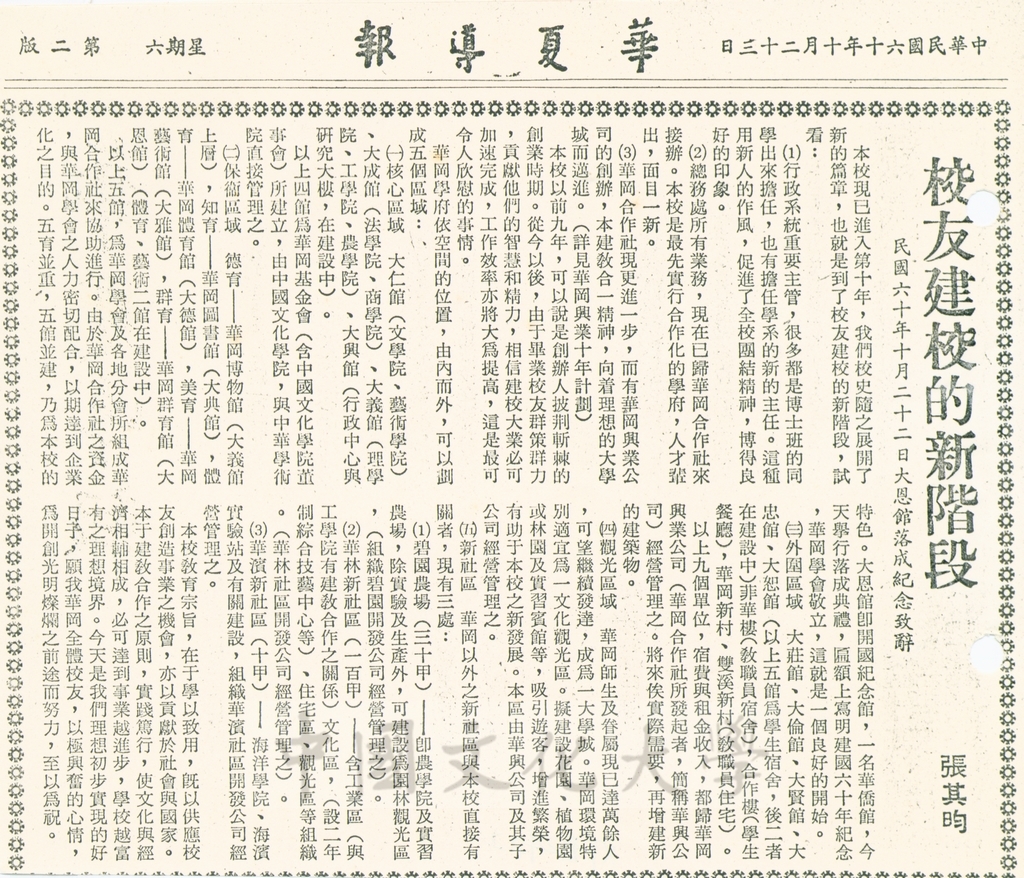 中華民國六十年十月二十三日
華夏導報
星期六　第二版
校友建校的新階段
民國六十年十月二十二日大恩館落成紀念致辭
張其昀
本校現已進入第十年，我們校史隨之展開了
新的篇章，也就是到了校友建校的新階段，試
看：
⑴行政系統重要主管，很多都是博士班的同
學出來擔任，也有擔任學系的新的主任。這種
用新人的作風，促進了全校團結精神，博得良
好的印象。
⑵總務處所有業務，現在已歸華岡合作社來
接辦。本校是最先實行合作化的學府，人才輩
出，面目一新。
⑶華岡合作社現更進一步，而有華岡興業公
司的創辦，本建敎合一精神，向着理想的大學
城而邁進。（詳見華岡興業十年計劃）
本校以前九年，可以說是創辦人披荆斬棘的
創業時期。從今以後，由于畢業校友群策群力
，貢獻他們的智慧和精力，相信建校大業必可
加速完成，工作效率亦將大爲提高，這是最可
令人欣慰的事情。
華岡學府依空間的位置，由內而外，可以劃
成五個區域：
㈠核心區域　大仁館（文學院、藝術學院）
、大成館（法學院、商學院）、大義館（理學
院、工學院、農學院）、大興館（行政中心與
研究大樓，在建設中）。
以上四館爲華岡基金會（含中國文化學院董
事會）所建立，由中國文化學院，與中華學術
院直接管理之。
㈡保衞區域　德育——華岡博物館（大義館
上層），知育——華岡圖書館（大典館），體
育——華岡體育館（大德館），美育——華岡
藝術館（大雅館），群育——華岡群育館（大
恩館）（體育、藝術二館在建設中）。
以上五館，爲華岡學會及各地分會所組成華
岡合作社來協助進行。由於華岡合作社之資金
，與華岡學會之人力密切配合，以期達到企業
化之目的。五育並重，五館並建，乃爲本校的
特色。大恩館卽開國紀念館，一名華僑館，今
天學行落成典禮，匾額上寫明建國六十年紀念
，華岡學會敬立，這就是一個良好的開始。
㈢外圍區域　大莊館、大倫館、大賢館、大
忠館、大恕館（以上五館爲學生宿舍，後二者
在建設中）菲華樓（敎職員宿舍），合作樓（學生
餐廳），華岡新村、雙溪新村（敎職員住宅）。
以上九個單位，宿費與租金收入，都歸華岡
興業公司（華岡合作社所發起者，簡稱華興公
司）經營管理之。將來俟實際需要，再增建新
的建築物。
㈣觀光區域　華岡師生及眷屬現已達萬餘人
，可望繼續發達，成爲一大學城。華岡環境特
別適宜爲一文化觀光區。擬建設花園、植物園
或林園及實習賓館等，吸引遊客，增進繁榮，
有助于本校之新發展。本區由華興公司及其子
公司經營管理之。
㈤新社區　華岡以外之新社區與本校直接有
關者，現有三處：
⑴碧園農場（三十甲）——卽農學院及實習
農場，除實驗及生產外，可建設爲園林觀光區
，（組織碧園開發公司經營管理之）。
⑵華林新社區（一百甲）——含工業區（與
工學院有建敎合作之關係）文化區，（設二年
制綜合技藝中心等）、住宅區、觀光區等組織
。（華林社區開發公司經營管理之）。
⑶華濱新社區（十甲）——海洋學院、海濱
實驗站及有關建設，組織華濱社區開發公司經
營管理之。
本校敎育宗旨，在于學以致用，旣以供應校
友創造事業之機會，亦以貢獻於社會與國家。
本于建敎合作之原則，實踐篤行，使文化與經
濟相輔相成，必可達到事業越進步，學校越富
有之理想境界。今天是我們理想初步實現的好
日子，願我華岡全體校友，以極興奮的心情，
爲開創光明燦爛之前途而努力，至以爲祝。
中國文化大學